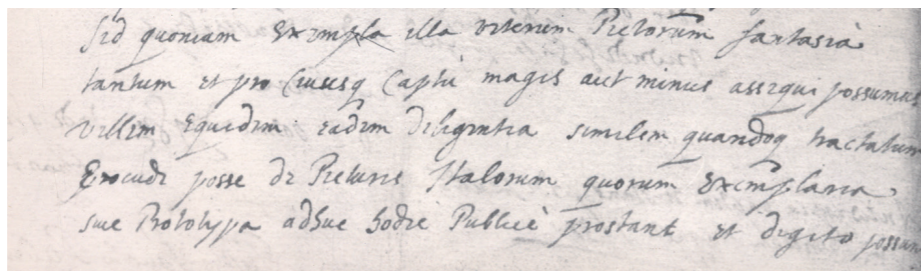 Sed quoniam Exempla illa veterum Pictorum fantasià
tantum et pro Cuiusq Captu magis aut minus assequi possumus
vellem Equidem eadem diligentia similem quandoq tractatum
Excudi posse de Picturis Italorum quorum Exemplaria
sive Prototypa adhuc hodie Publicè prostant et digito possum